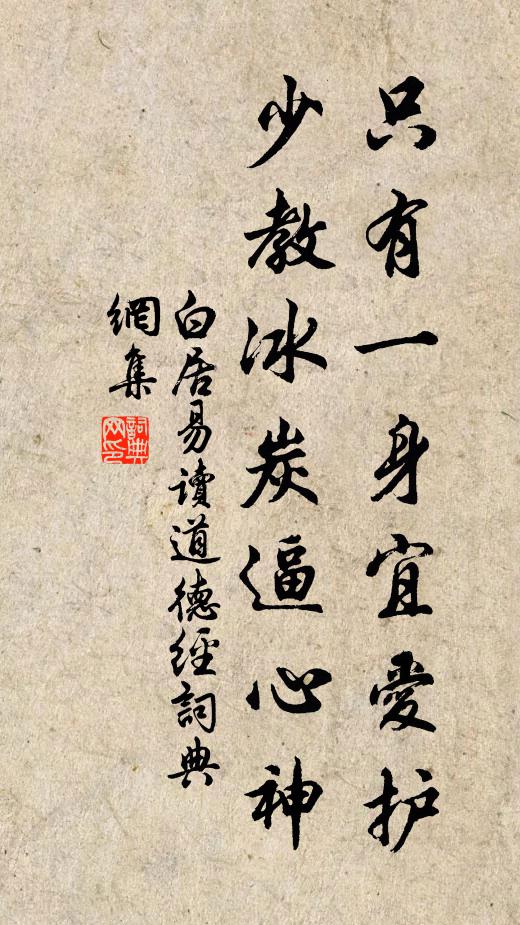 只有一身宜愛护
少教冰炭逼心神
白居易讀道德經詞典
網集
詞典
网印